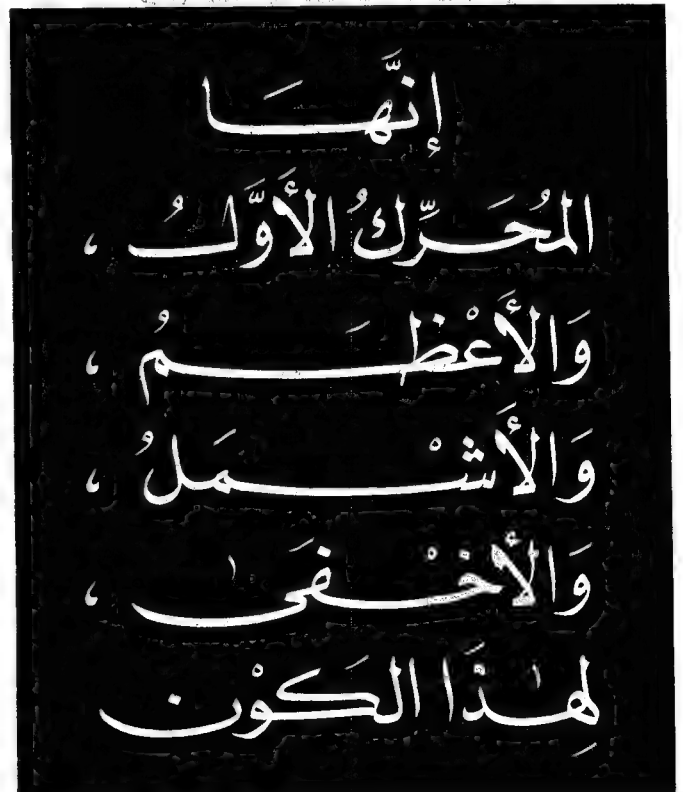 إنَّهَا
المُحَرِّكُ الأَوَّلُ ،
وَالأَعْظَمُ ،
وَالأَشْمَلُ ،
وَالأَخْفَى ،
لِهذَا الكَوْن